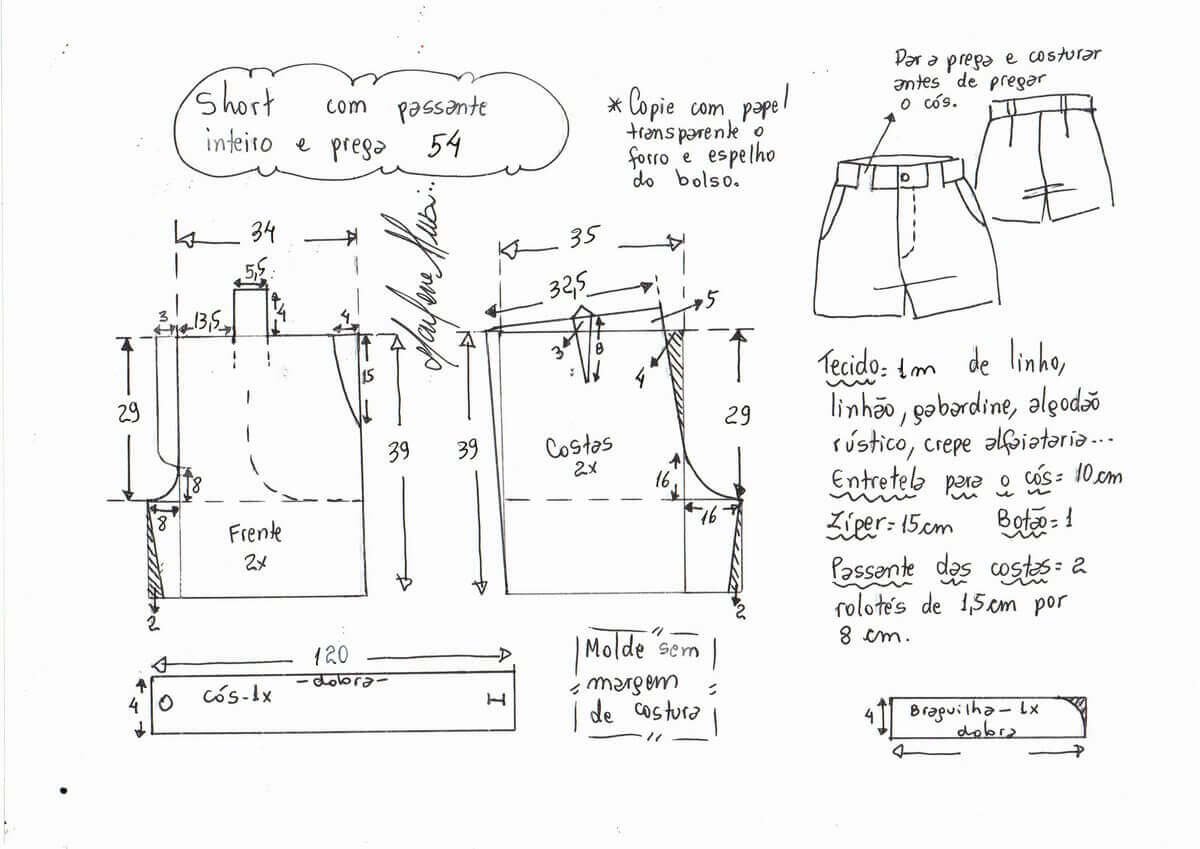 Short com passante
inteiro e prega 54
* Copie com papel
transparente o
forro e espelho
do bolso.
Para prega e costurar
antes de pregar
o cós.
34
5,5
4
3
13,5
4
15
29
39
8
8
Frente
2x
2
35
32,5
5
3
8
4
39
29
Costas
2x
16
16
2
Tecido = 1m de linho,
linhão, gabardine, algodão
rústico, crepe alfaiataria...
Entretela para o cós = 10 cm
Zíper = 15 cm Botão = 1
Passante das costas = 2
rolotés de 1,5 cm por
8 cm.
120
4
cós - 1x
- dobra -
Molde sem
margem
de costura
4
Braguilha - 1x
dobra